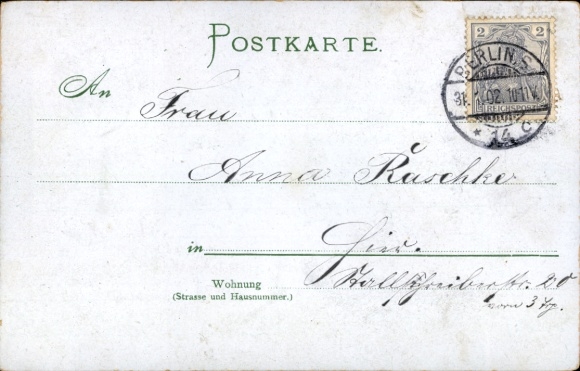 POSTKARTE.
2 2
REICHSPOST
BERLIN S.
02. 10-11V.
* 14 c
An Frau
Anna Raschke
in Hier.
Wohnung Stallschreiberstr. 20
(Strasse und Hausnummer.)
vorn 3 Trp.